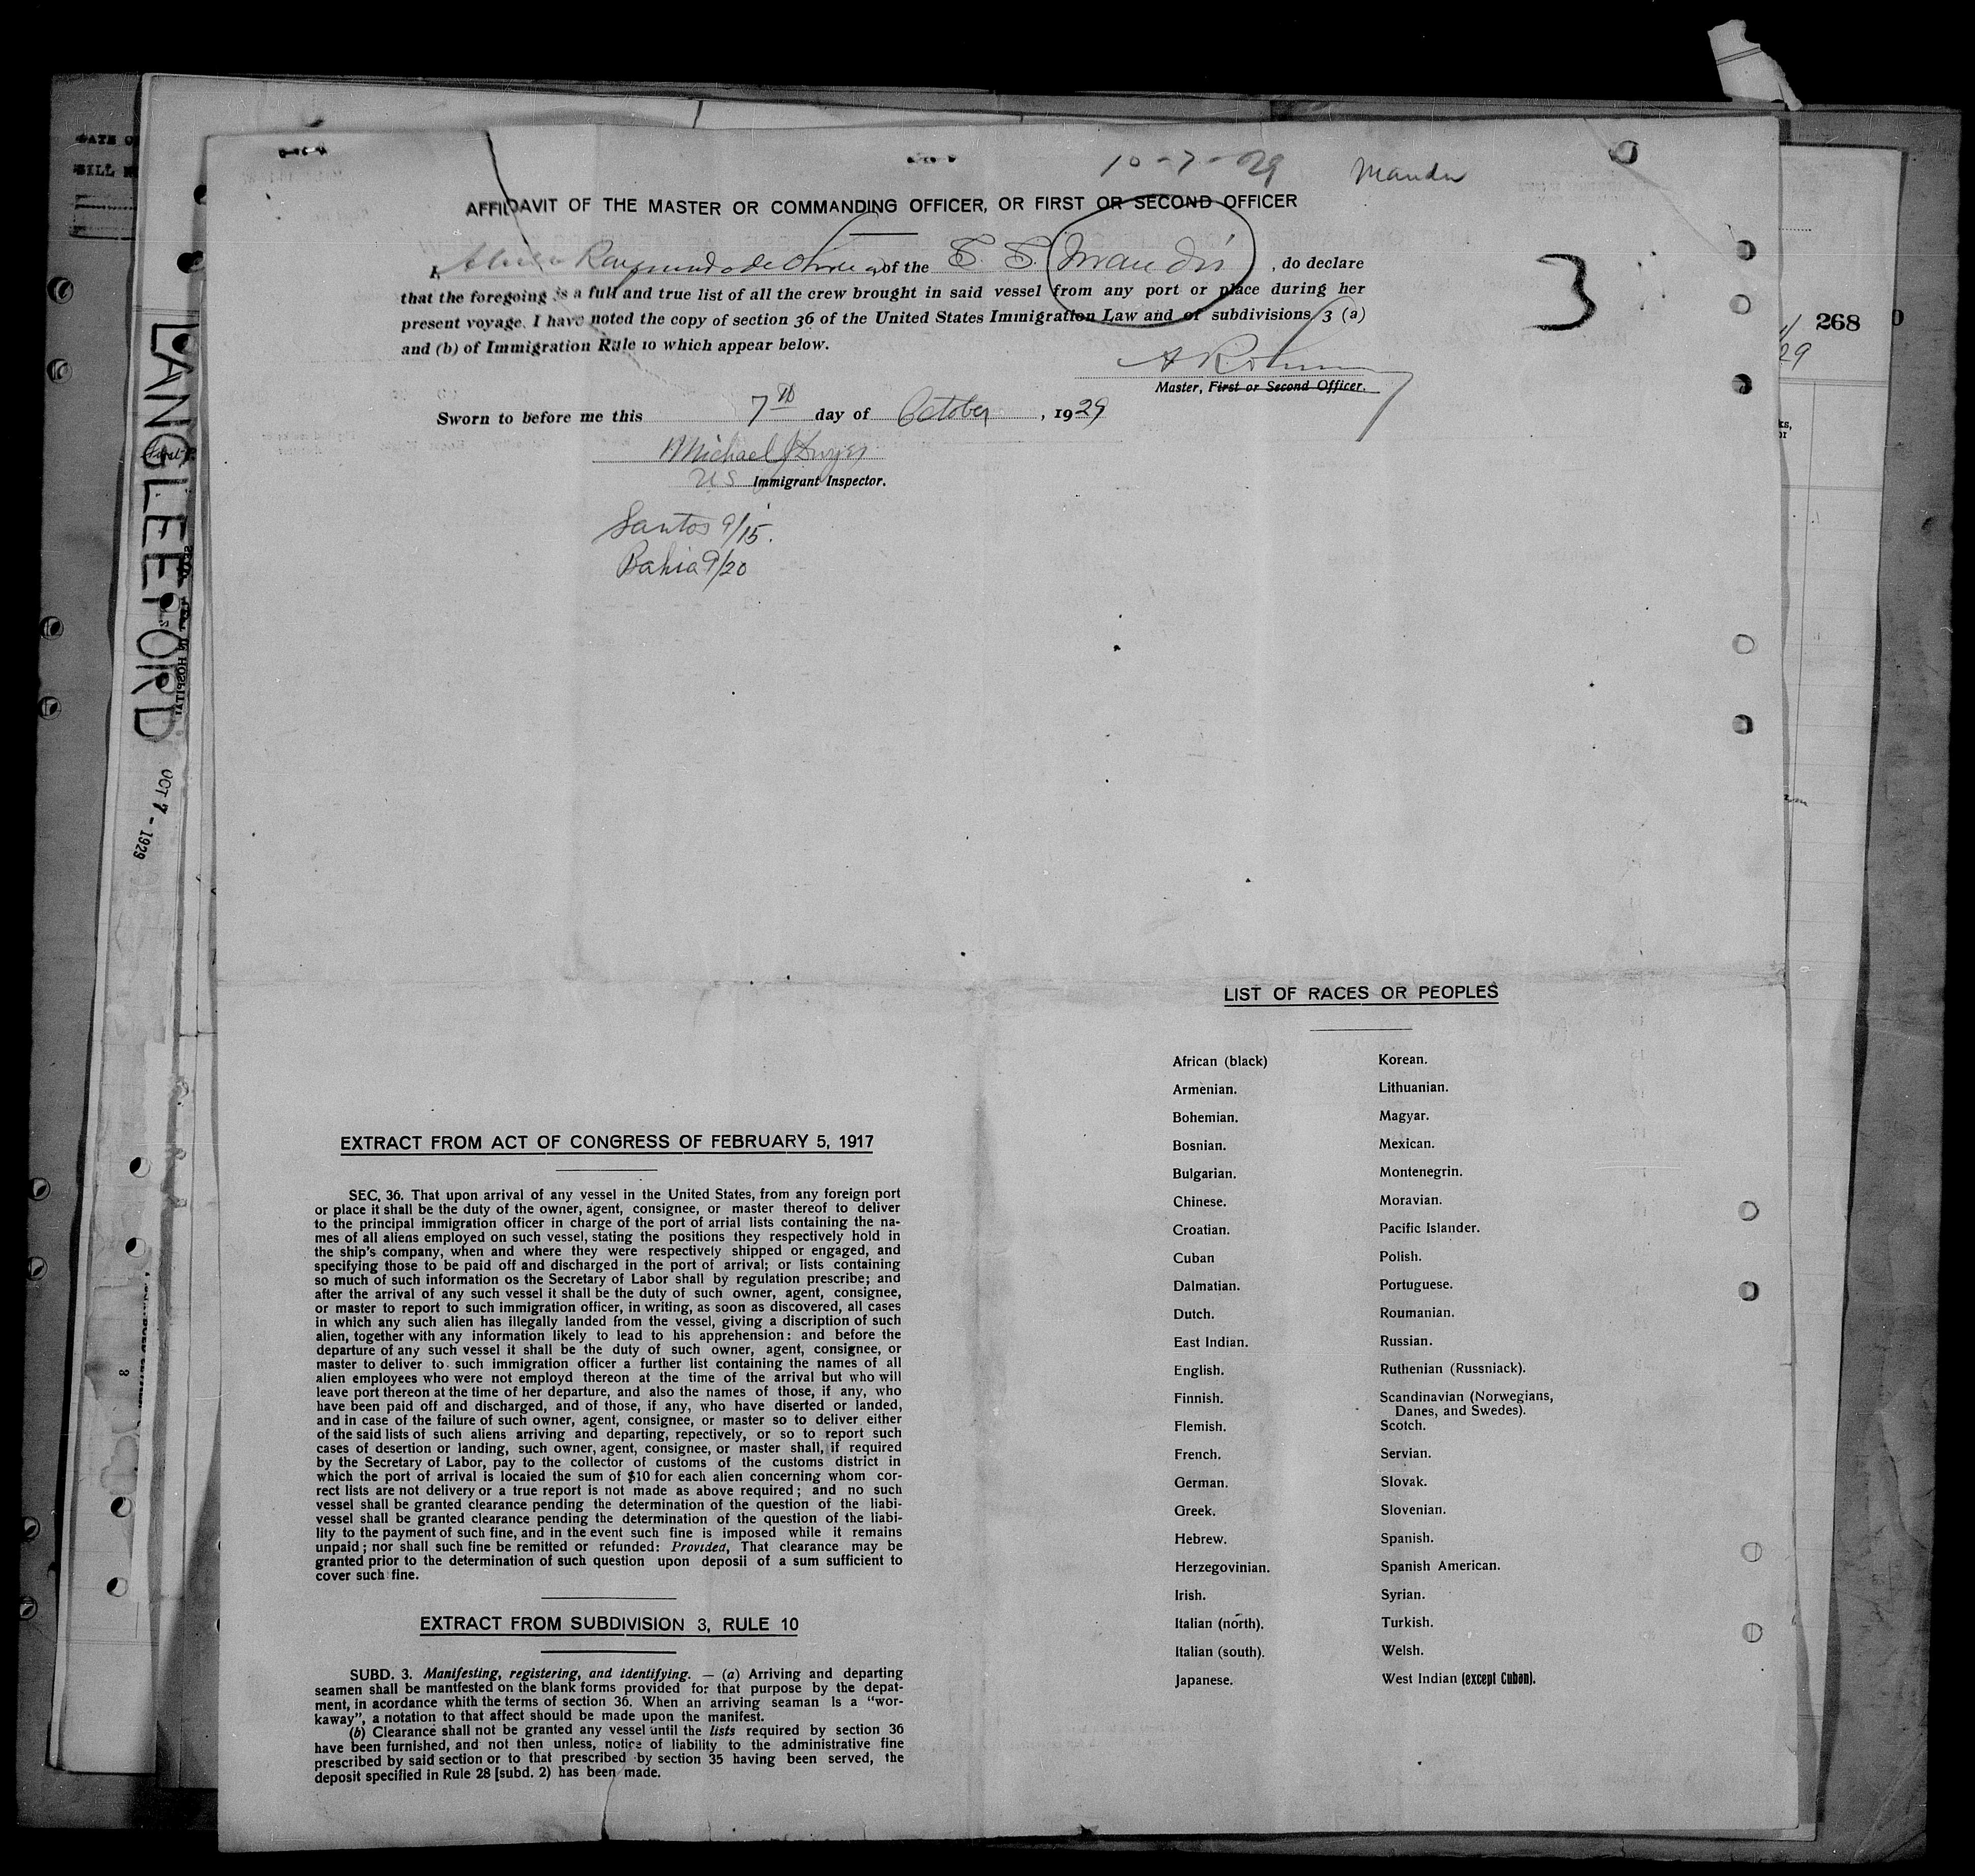 10-7-29
AFFIDAVIT OF THE MASTER OR COMMANDING OFFICER, OR FIRST OR SECOND OFFICER
I, Raymundo de of the S. S. Mandú , do declare
that the foregoing is a full and true list of all the crew brought in said vessel from any port or place during her
present voyage. I have noted the copy of section 36 of the United States Immigration Law and of subdivisions 3 (a)
and (b) of Immigration Rule 10 which appear below.
3
Master, First or Second Officer.
Sworn to before me this 7th day of October , 1929
Michael J Dwyer
U S Immigrant Inspector.
Santos 9/15.
Bahia 9/20
268
LANGLEEFORD
OCT 7 - 1929
EXTRACT FROM ACT OF CONGRESS OF FEBRUARY 5, 1917
SEC. 36. That upon arrival of any vessel in the United States, from any foreign port
or place it shall be the duty of the owner, agent, consignee, or master thereof to deliver
to the principal immigration officer in charge of the port of arrial lists containing the na-
mes of all aliens employed on such vessel, stating the positions they respectively hold in
the ship's company, when and where they were respectively shipped or engaged, and
specifying those to be paid off and discharged in the port of arrival; or lists containing
so much of such information os the Secretary of Labor shall by regulation prescribe; and
after the arrival of any such vessel it shall be the duty of such owner, agent, consignee,
or master to report to such immigration officer, in writing, as soon as discovered, all cases
in which any such alien has illegally landed from the vessel, giving a discription of such
alien, together with any information likely to lead to his apprehension: and before the
departure of any such vessel it shall be the duty of such owner, agent, consignee, or
master to deliver to such immigration officer a further list containing the names of all
alien employees who were not employd thereon at the time of the arrival but who will
leave port thereon at the time of her departure, and also the names of those, if any, who
have been paid off and discharged, and of those, if any, who have diserted or landed,
and in case of the failure of such owner, agent, consignee, or master so to deliver either
of the said lists of such aliens arriving and departing, repectively, or so to report such
cases of desertion or landing, such owner, agent, consignee, or master shall, if required
by the Secretary of Labor, pay to the collector of customs of the customs district in
which the port of arrival is locaied the sum of $10 for each alien concerning whom cor-
rect lists are not delivery or a true report is not made as above required; and no such
vessel shall be granted clearance pending the determination of the question of the liabi-
vessel shall be granted clearance pending the determination of the question of the liabi-
lity to the payment of such fine, and in the event such fine is imposed while it remains
unpaid; nor shall such fine be remitted or refunded: Provided, That clearance may be
granted prior to the determination of such question upon deposii of a sum sufficient to
cover such fine.
EXTRACT FROM SUBDIVISION 3, RULE 10
SUBD. 3. Manifesting, registering, and identifying. — (a) Arriving and departing
seamen shall be mantfested on the blank forms provided for that purpose by the depat-
ment, in acordance whith the terms of section 36. When an arriving seaman is a "wor-
kaway", a notation to that affect should be made upon the manifest.
(b) Clearance shall not be granted any vessel until the lists required by section 36
have been furnished, and not then unless, notice of liability to the administrative fine
prescribed by said section or to that prescribed by section 35 having been served, the
deposit specified in Rule 28 [subd. 2) has been made.
LIST OF RACES OR PEOPLES
African (black)
Armenian.
Bohemian.
Bosnian.
Bulgarian.
Chinese.
Croatian.
Cuban
Dalmatian.
Dutch.
East Indian.
English.
Finnish.
Flemish.
French.
German.
Greek.
Hebrew.
Herzegovinian.
Irish.
Italian (north).
Italian (south).
Japanese.
Korean.
Lithuanian.
Magyar.
Mexican.
Montenegrin.
Moravian.
Pacific Islander.
Polish.
Portuguese.
Roumanian.
Russian.
Ruthenian (Russniack).
Scandinavian (Norwegians,
Danes, and Swedes).
Scotch.
Servian.
Slovak.
Slovenian.
Spanish.
Spanish American.
Syrian.
Turkish.
Welsh.
West Indian (except Cuban).